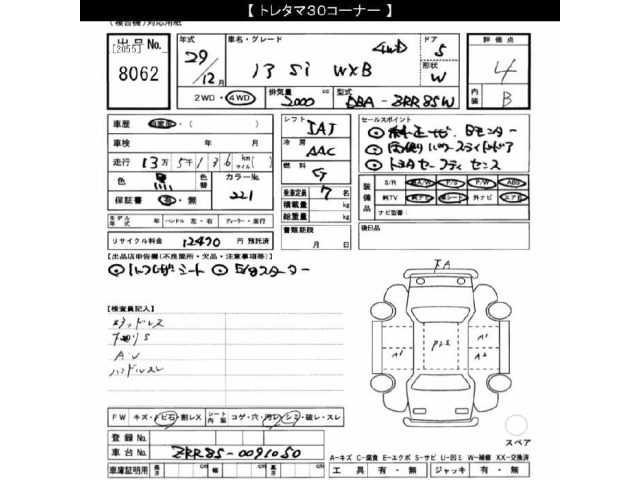 【 トレタマ30コーナー 】
(複合機)対応用紙
出品No. [2055] 8062
年式 29/12月
車名・グレード ヴォクシー Si W×B 4WD
ドア 5
形状 W
評価点 4
内装 B
2WD・4WD
排気量 2000 cc
型式 DBA-ZRR85W
車歴 自家用・( )
車検 年 月
走行 13万5千136 km マイル ( )
色 黒 色替 カラーNo. 221
保証書 有・無
シフト IAT
冷房 AAC
燃料 G
乗車定員 7 名
積載量 kg
総重量 kg
セールスポイント
◎純正ナビ、Bモニター
◎両側パワースライドドア
◎トヨタセーフティセンス
装備品 S/R 純A/W P/S P/W ABS
純TV 純ナビ 革シート 外ナビ エアB
ナビ型番:
モデル年式 年 ハンドル 左・右 ディーラー・並行
リサイクル料金 12470 円 預託済
書類期限 月 日
後日品
【出品店申告欄(不良箇所・欠品・注意事項等)】
◎ハーフレザーシート ◎Bモニター
FA
【検査員記入】
エアロキズ
下廻りS
A.U
ハンドルスレ
A1
P23
A1
A2
FW キズ・トビ石・割レX シート内装 コゲ・穴・汚レ・シミ・破レ・スレ
登録No.
車台No. ZRR85-0091050
車庫証明用 長さ cm 幅 cm 高さ cm
スペア
A-キズ C-腐食 E-エクボ S-サビ U-凹ミ W-補修 XX-交換済
工具 有・無 ジャッキ 有・無